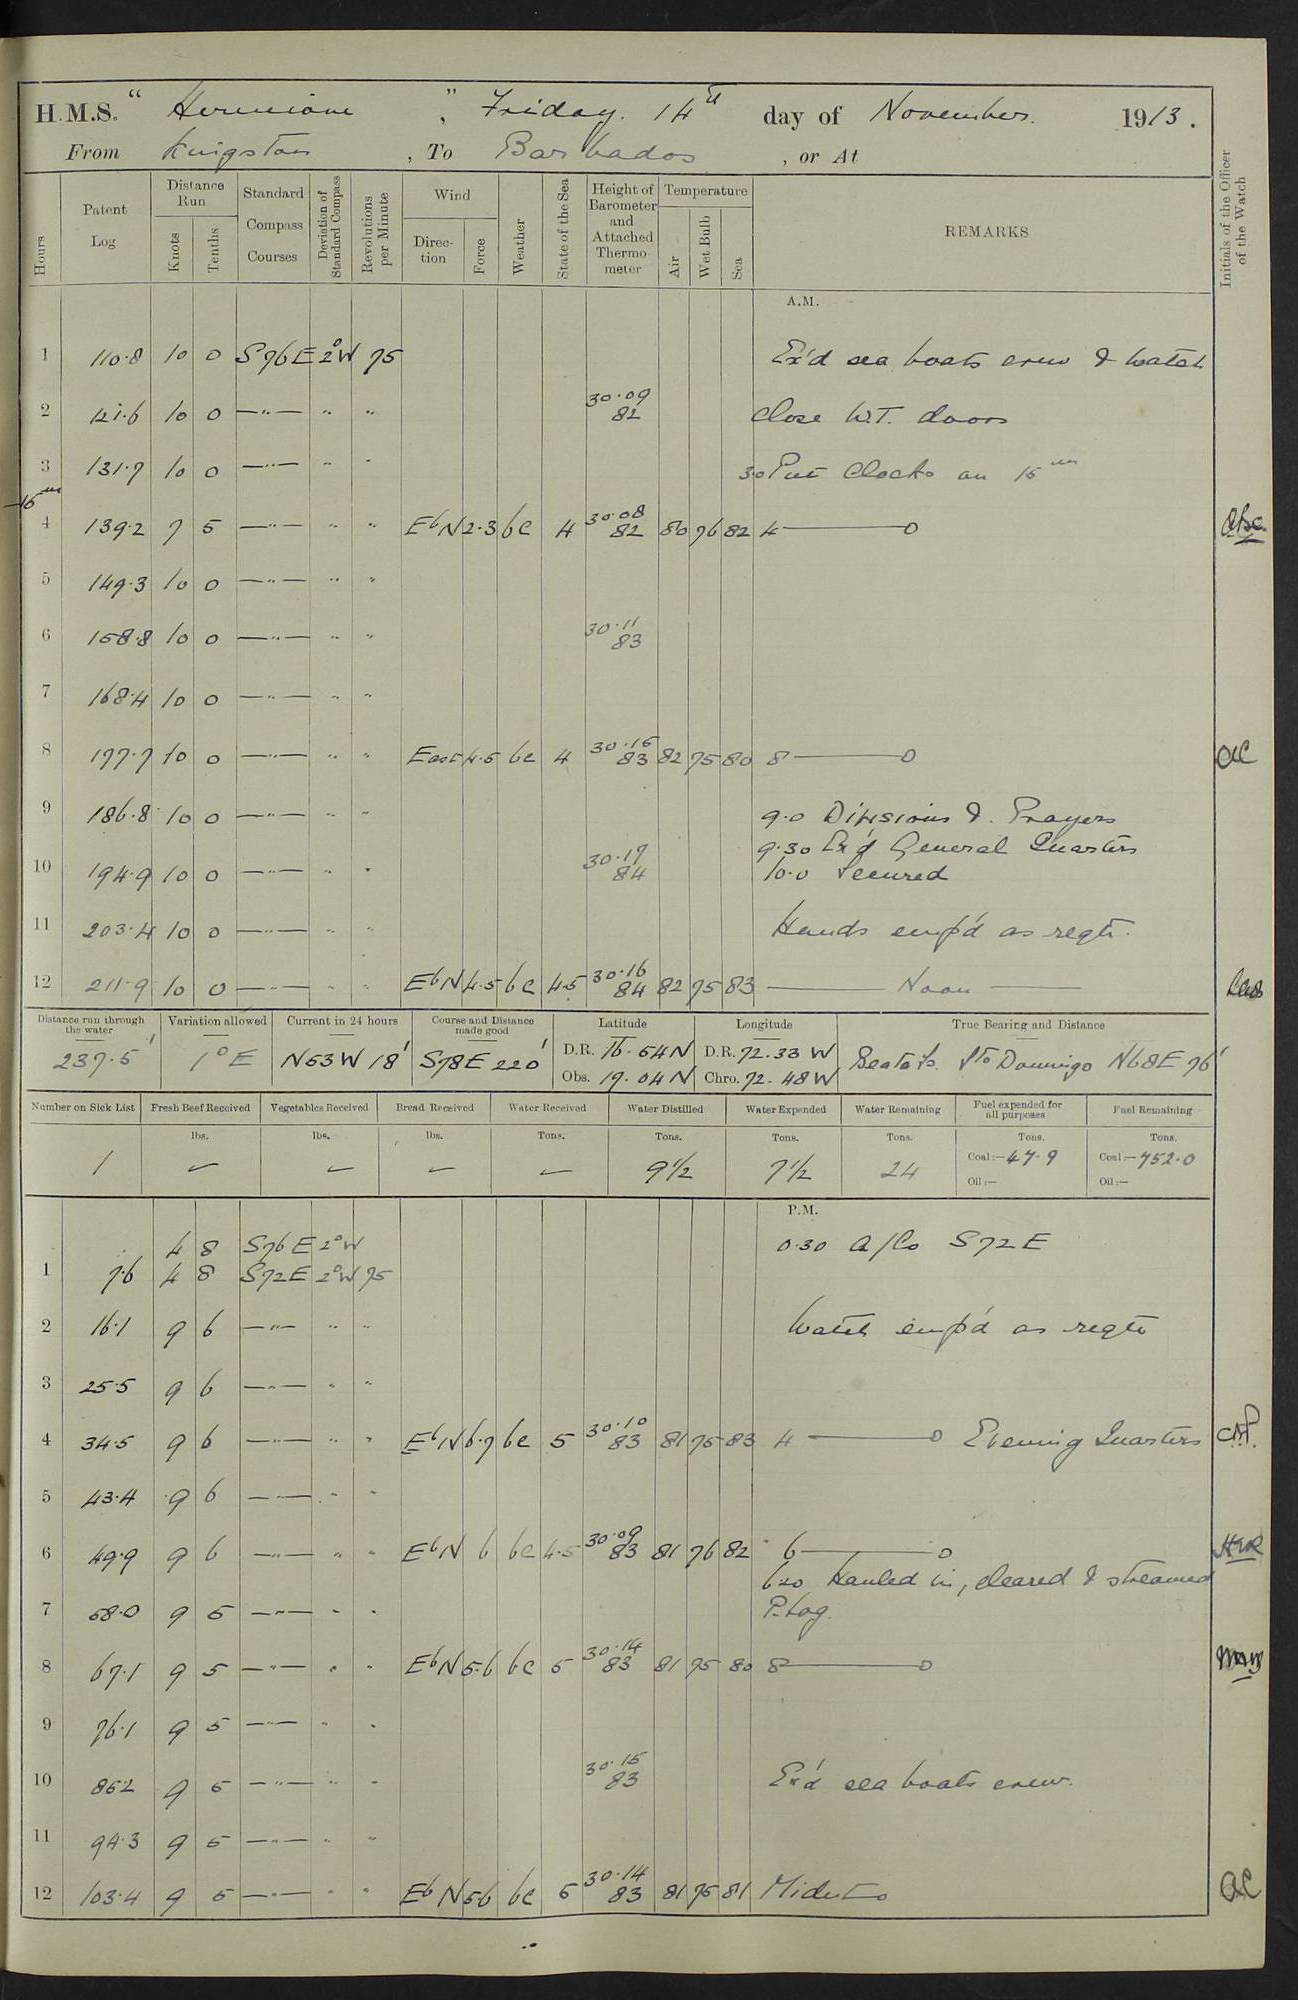 H.M.S. " Hermione ", Friday. 14th day of November. 1913.
From Kingston , To Barbados , or At
Hours
Patent Log
Distance Run
Knots
Tenths
Standard Compass Courses
Deviation of Standard Compass
Revolutions per Minute
Wind
Direction
Force
Weather
State of the Sea
Height of Barometer and Attached Thermometer
Temperature
Air
Wet Bulb
Sea
REMARKS
Initials of the Officer of the Watch
A.M.
1 110.8 10 0 S76E 2°W 75 Ex'd sea boats crew & watch
2 121.6 10 0 —"— " " 30.09 82 Close W.T. doors
3 131.7 10 0 —"— " " 3.0 Put Clocks on 15 m
-15 m
4 139.2 7 5 —"— " " EbN 2.3 bc 4 30.08 82 80 76 82 4 ——— 0
5 149.3 10 0 —"— " "
6 158.8 10 0 —"— " " 30.11 83
7 168.4 10 0 —"— " "
8 177.7 10 0 —"— " " East 4.5 bc 4 30.15 83 82 75 80 8 ——— 0
9 186.8 10 0 —"— " " 9.0 Divisions & Prayers
9.30 Ex'd General Quarters
10 194.9 10 0 —"— " " 30.17 84 10.0 Secured
11 203.4 10 0 —"— " " Hands emp'd as reqte.
12 211.9 10 0 —"— " " EbN 4.5 bc 4.5 30.16 84 82 75 83 ——— Noon ———
Distance run through the water 237.5'
Variation allowed 1°E
Current in 24 hours N53W 18'
Course and Distance made good S78E 220'
Latitude D.R. 16.54N Obs. 17.04N
Longitude D.R. 72.33 W Chro. 72.48W
True Bearing and Distance Beata Is. Sto Domingo N68E 76'
Number on Sick List 1
Fresh Beef Received lbs. ✓
Vegetables Received lbs. ✓
Bread Received lbs. ✓
Water Received Tons. ✓
Water Distilled Tons. 9½
Water Expended Tons. 7½
Water Remaining Tons. 24
Fuel expended for all purposes Tons. Coal:— 47.9 Oil:—
Fuel Remaining Tons. Coal:— 752.0 Oil:—
P.M.
4 8 S76E 2°W 0.30 A/Co S72E
1 7.6 4 8 S72E 2°W 75
2 16.1 9 6 —"— " " Watch emp'd as reqte
3 25.5 9 6 —"— " "
4 34.5 9 6 —"— " " EbN 6.7 bc 5 30.10 83 81 75 83 4 ——— 0 Evening Quarters
5 43.4 9 6 —"— " "
6 49.9 9 6 —"— " " EbN 6 bc 4.5 30.09 83 81 76 82 6 ——— 0
6.20 Hauled in, cleared & streamed
7 58.0 9 5 —"— " " P. Log.
8 67.1 9 5 —"— " " EbN 5.6 bc 5 30.14 83 81 75 80 8 ——— 0
9 76.1 9 5 —"— " "
10 85.2 9 5 —"— " " 30.15 83 Ex'd sea boats crew.
11 94.3 9 5 —"— " "
12 103.4 9 5 —"— " " EbN 5.6 bc 5 30.14 83 81 75 81 Midnt